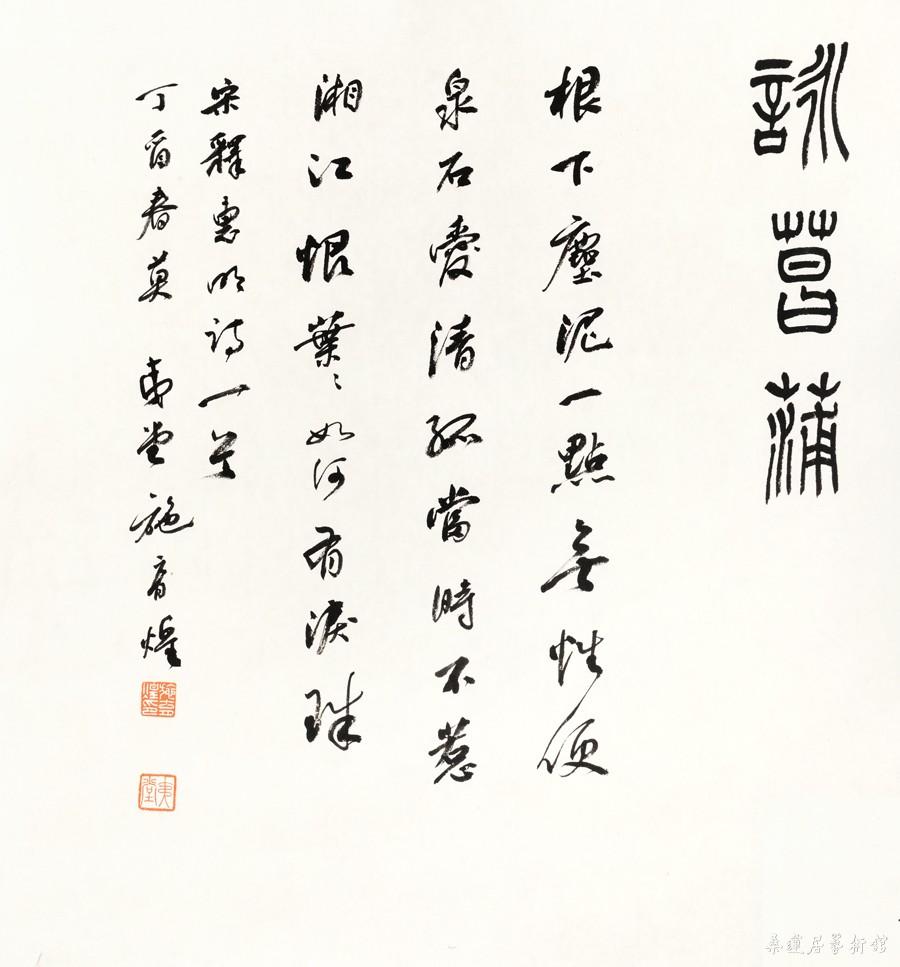 詠菖蒲
根下塵泥一點無性便
泉石愛清孤當時不惹
湘江恨葉〻如何有淚珠
宋釋惠明詩一首
丁酉春莫 夷堂施育煌
施育煌印
夷堂
桑蓮居藝術館